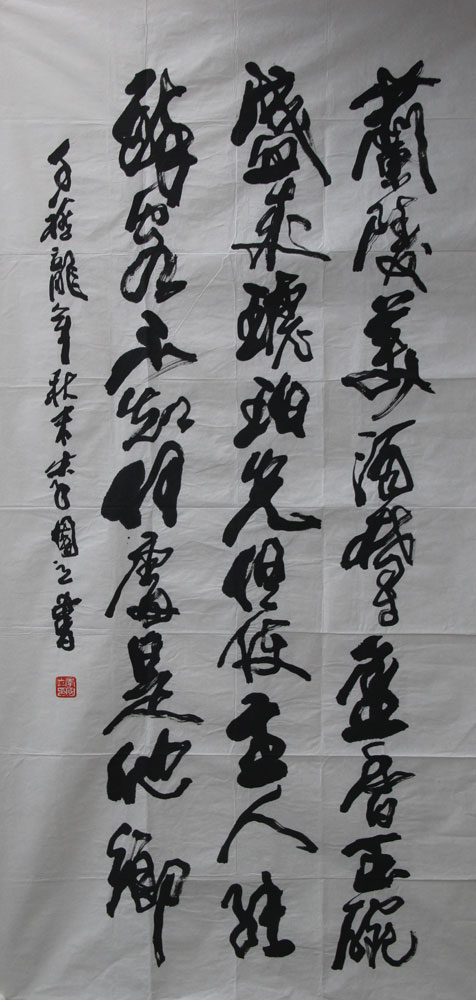 蘭陵美酒鬱金香玉碗
盛來琥珀光但使主人能
醉客不知何處是他鄉
千禧龍年秋末國立書